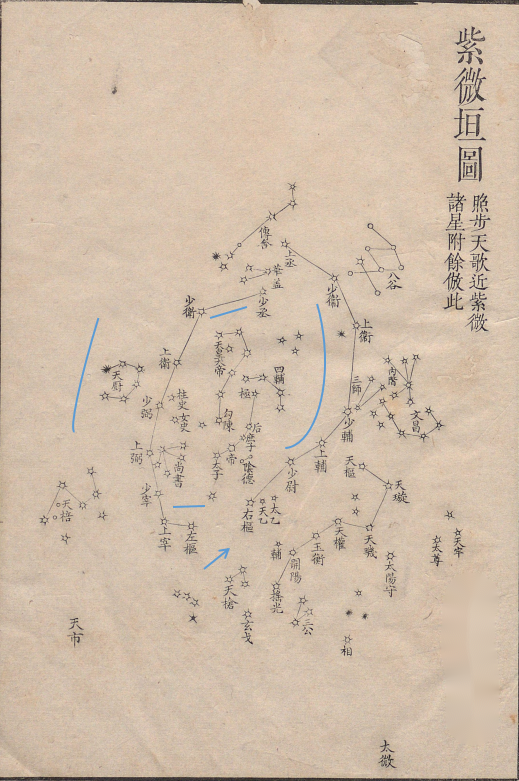 紫微垣圖
照步天歌近紫微
諸星附餘倣此
傳舍
上丞
華蓋
少丞
八谷
少衛
少衛
上衛
上衛
天皇帝
四輔
內階
三師
天廚
文昌
少弼
柱史
女史
極
勾陳
后
庶子
少輔
上輔
上弼
尚書
太子
帝
陰德
少尉
天樞
天璇
少宰
天棓
右樞
太乙
天乙
上宰
左樞
天權
天璣
玉衡
輔
開陽
太陽守
太尊
天牢
天槍
搖光
玄戈
三公
相
天市
太微